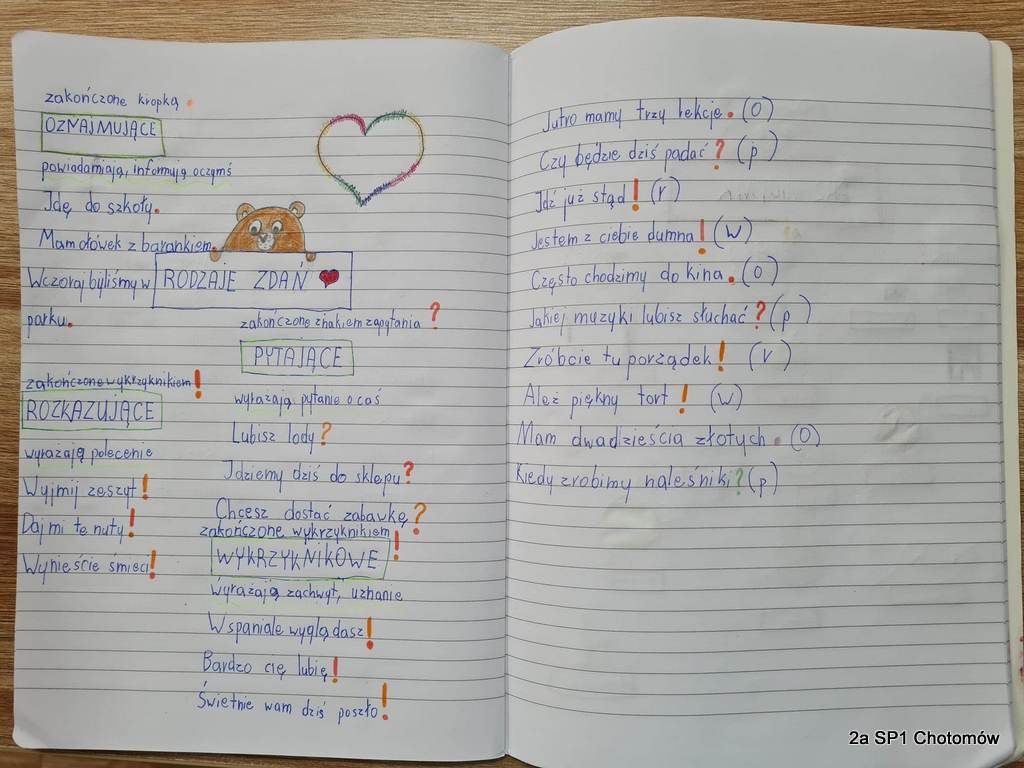 zakończone kropką .
OZNAJMUJĄCE
powiadamiają, informują o czymś
Idę do szkoły.
Mam ołówek z barankiem.
Wczoraj byliśmy w
parku.
RODZAJE ZDAŃ
zakończone wykrzyknikiem!
ROZKAZUJĄCE
wyrażają polecenie
Wyjmij zeszyt!
Daj mi te nuty!
Wynieście śmieci!
zakończone znakiem zapytania ?
PYTAJĄCE
wyrażają pytanie o coś
Lubisz lody?
Idziemy dziś do sklepu?
Chcesz dostać zabawkę?
zakończone wykrzyknikiem!
WYKRZYKNIKOWE
wyrażają zachwyt, uznanie
Wspaniale wyglądasz!
Bardzo cię lubię!
Świetnie wam dziś poszło!
Jutro mamy trzy lekcje. (O)
Czy będzie dziś padać? (p)
Idź już stąd! (r)
Jestem z ciebie dumna! (W)
Często chodzimy do kina. (O)
Jakiej muzyki lubisz słuchać? (p)
Zróbcie tu porządek! (r)
Ależ piękny tort! (W)
Mam dwadzieścia złotych. (O)
Kiedy zrobimy naleśniki? (p)
2a SP1 Chotomów